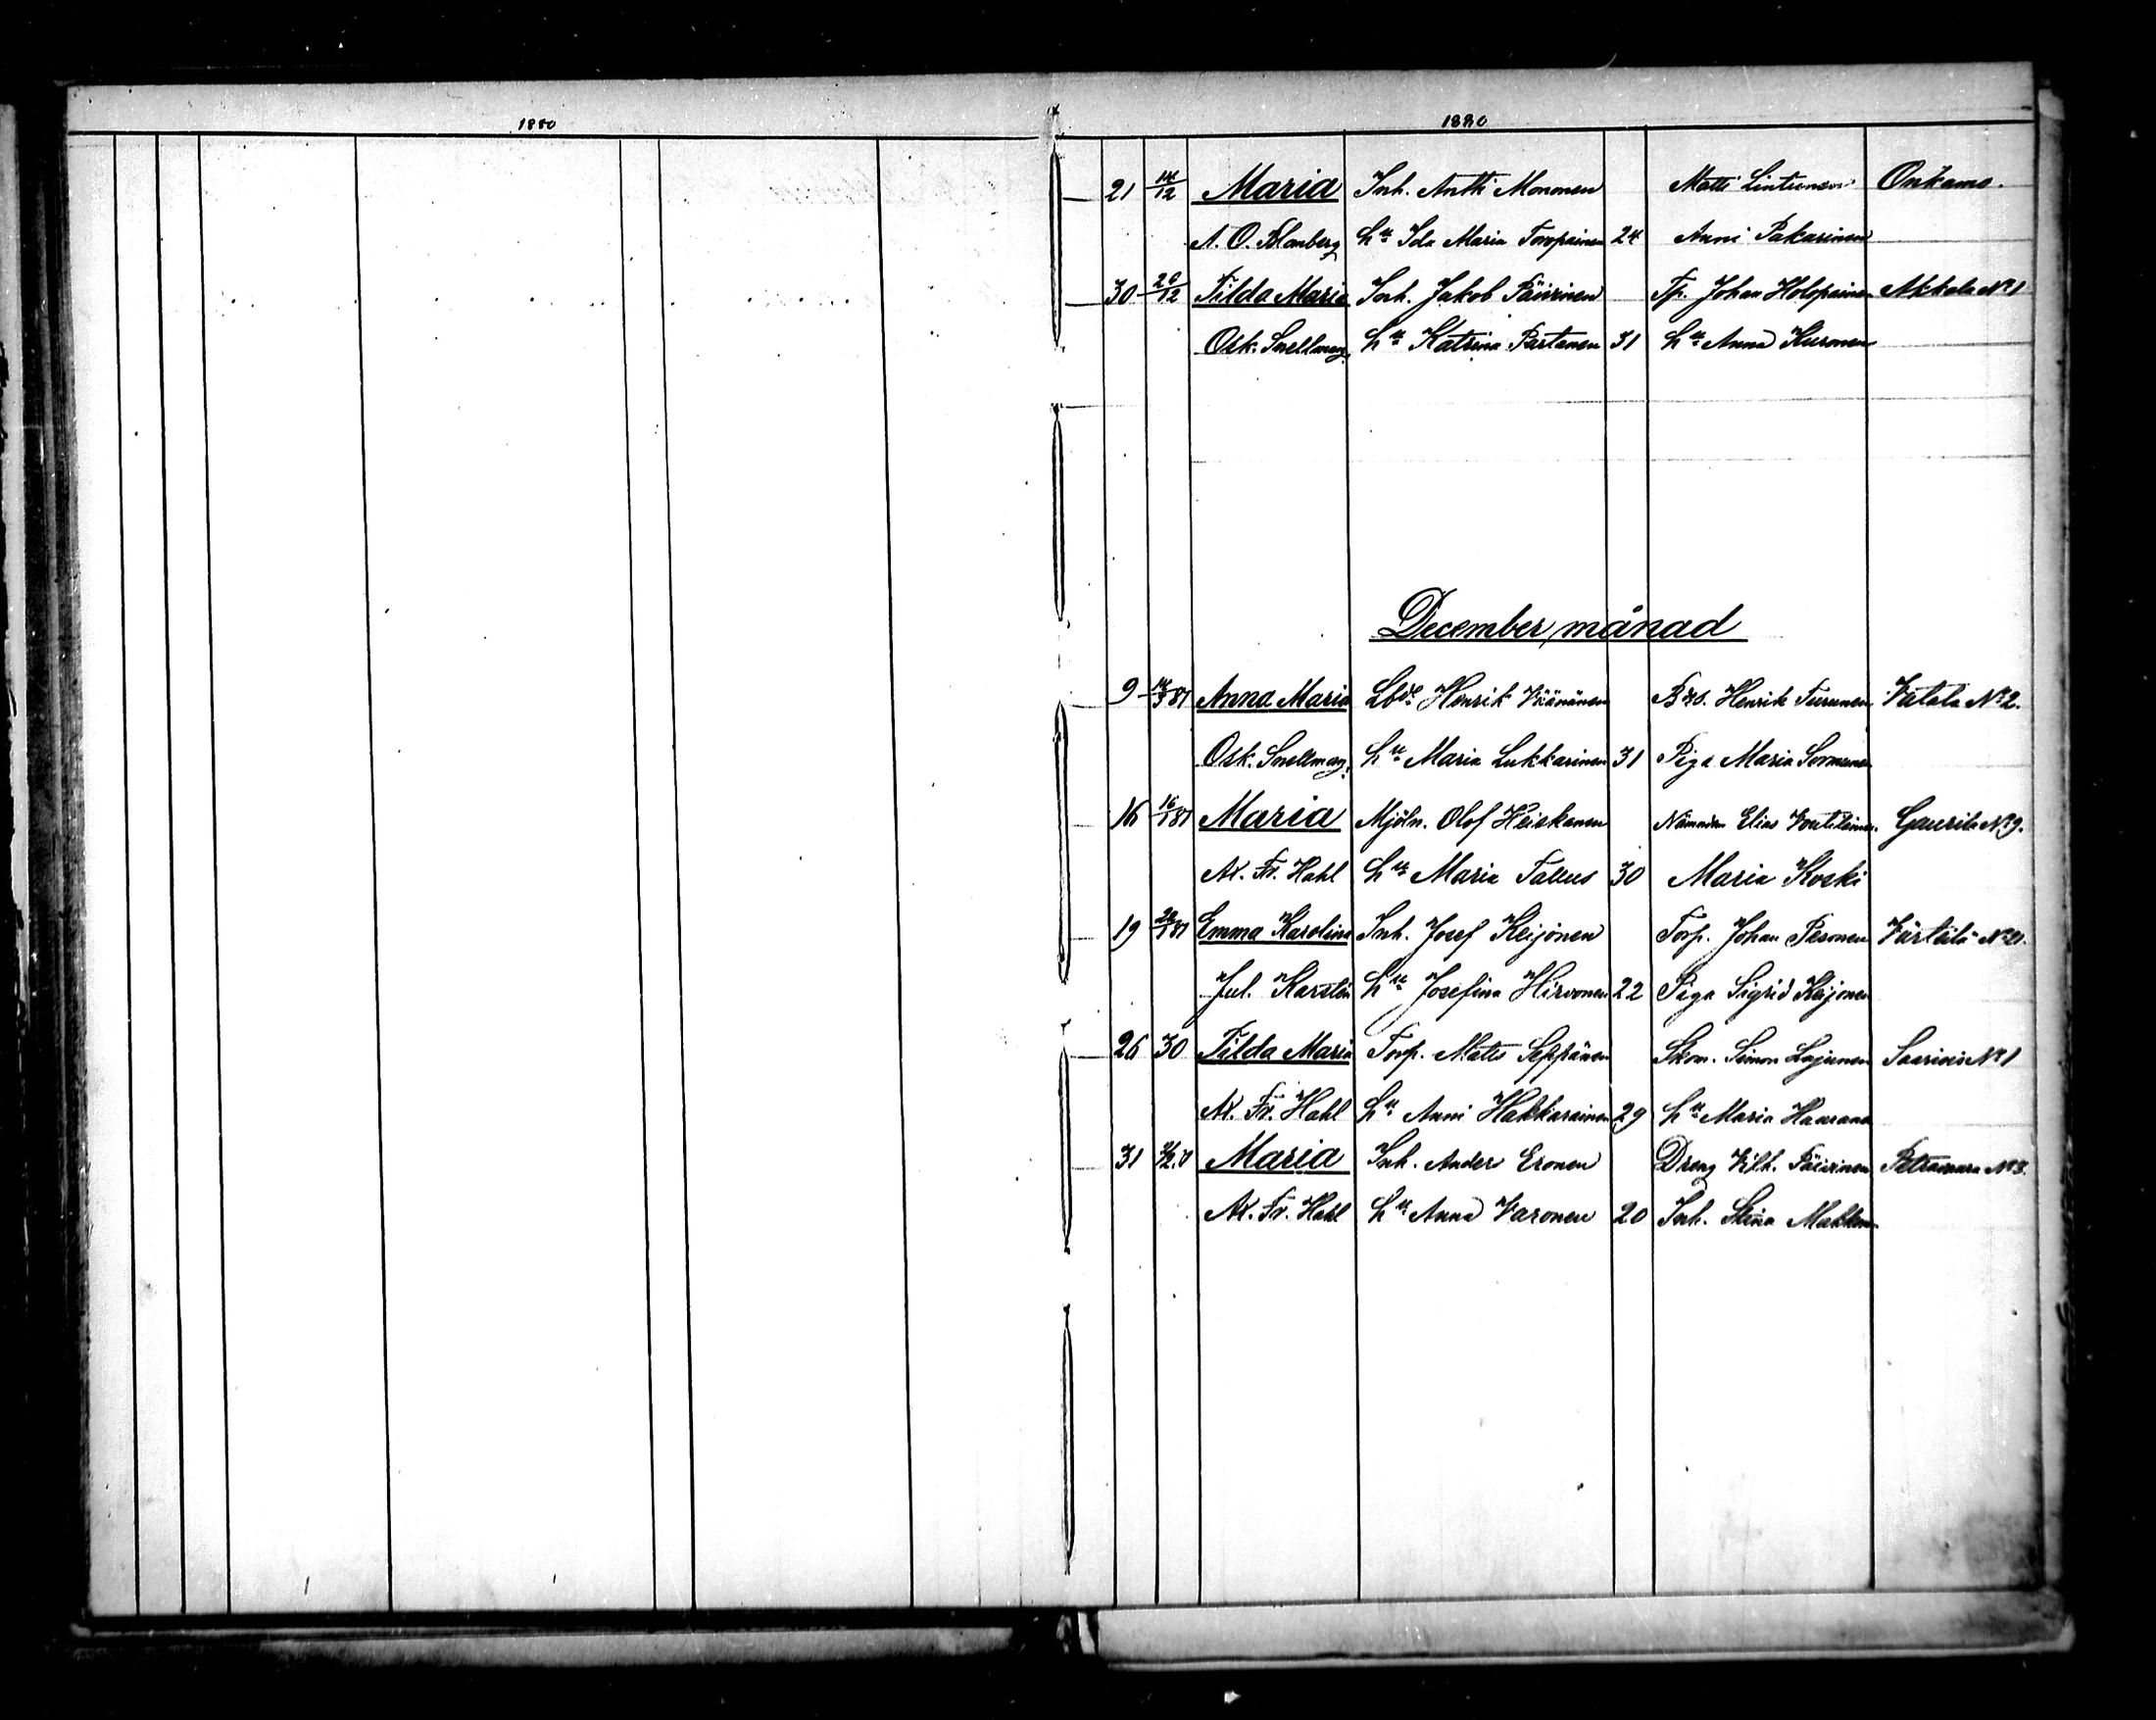 1880
1880
21 14/12 Maria Inh. Antti Mononen Matti Lintunen Onkamo.
A. O. Blomberg hu Ida Maria Toropainen 24 Anni Pakarinen
30 26/12 Tilda Maria Inh. Jakob Päivinen Tp. Johan Holopainen Akkala No 1
Osk. Snellman hu Katrina Partanen 31 hu Anna Kuronen
December månad
9 81 Anna Maria Henrik Väänänen Henrik Turunen No 2.
Osk. Snellman. hu Maria Lukkarinen 31 Piga Maria Sormunen
16 16/1 81 Maria Mjöln. Olof Heiskanen Nämndem Elias Voutilainen. Gaurila No 9.
Ax. Fr. Hahl hu Maria Tallus 30 Maria Koski
19 /1 81 Emma Karolina Inh. Josef Keijonen Torp. Johan Pesonen Värtsilä
Jul. Karstén hu Josefina Hirvonen 22 Piga Sigrid Keijonen
26 30 Tilda Maria Torp. Mats Seppänen Skom. Simon Lajunen No 1
Ax. Fr. Hahl hu Anni Hakkarainen 29 hu Maria
31 Maria Inh. Anders Eronen Dreng Vilh. Päivinen Petravaara No 3.
Ax. Fr. Hahl hu Anna Varonen 20 Inh. Stina